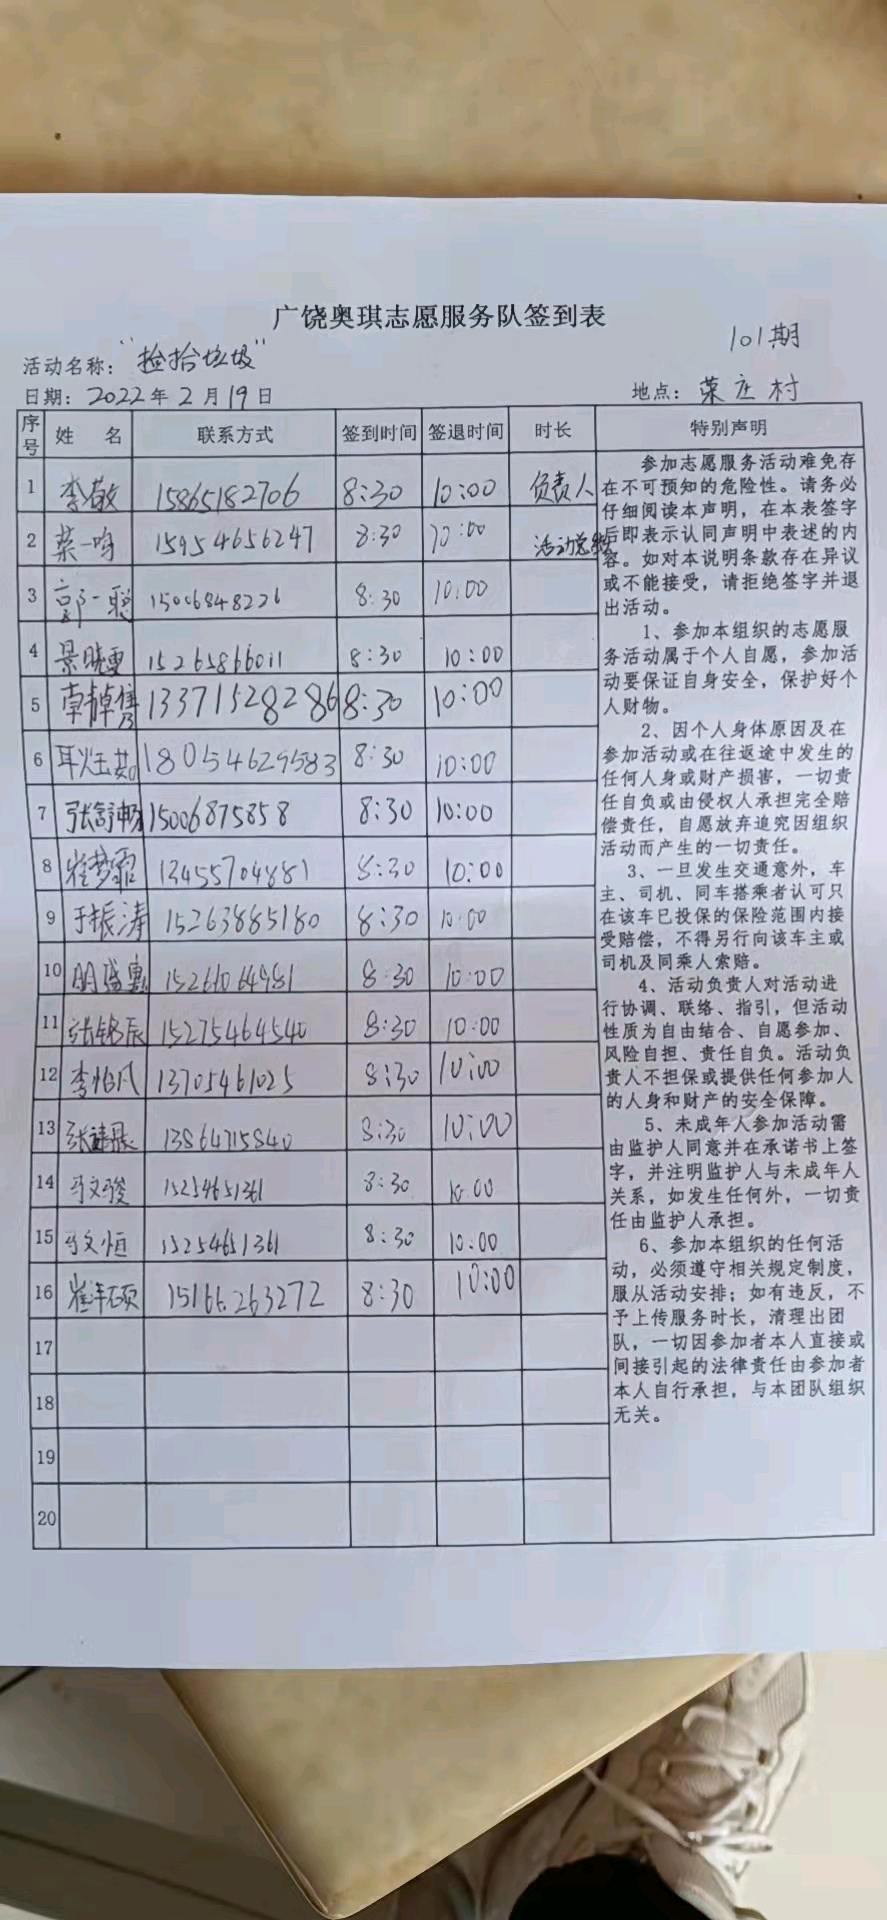 广饶奥琪志愿服务队签到表
101期
活动名称："捡拾垃圾"
日期：2022年2月19日
地点：菜庄村
序号 姓 名 联系方式 签到时间 签退时间 时长 特别声明
1 李敬 15865182706 8:30 10:00 负责人
2 蔡一鸣 15954656247 8:30 10:00 活动
3 郭一聪 15006848226 8:30 10:00
4 景晓雯 15265866011 8:30 10:00
5 13371528286 8:30 10:00
6 18054629583 8:30 10:00
7 张舒畅 15006875858 8:30 10:00
8 崔梦霜 13455704881 8:30 10:00
9 于振涛 15263885180 8:30 10:00
10 明盛 15261064981 8:30 10:00
11 张铭辰 15275464540 8:30 10:00
12 李怡凡 13705461025 8:30 10:00
13 13864715840 8:30 10:00
14 马文骏 15254651361 8:30 10:00
15 马文恒 15254651361 8:30 10:00
16 15166263272 8:30 10:00
17
18
19
20
参加志愿服务活动难免存
在不可预知的危险性。请务必
仔细阅读本声明，在本表签字
后即表示认同声明中表述的内
容。如对本说明条款存在异议
或不能接受，请拒绝签字并退
出活动。
1、参加本组织的志愿服
务活动属于个人自愿，参加活
动要保证自身安全，保护好个
人财物。
2、因个人身体原因及在
参加活动或在往返途中发生的
任何人身或财产损害，一切责
任自负或由侵权人承担完全赔
偿责任，自愿放弃追究因组织
活动而产生的一切责任。
3、一旦发生交通意外，车
主、司机、同车搭乘者认可只
在该车已投保的保险范围内接
受赔偿，不得另行向该车主或
司机及同乘人索赔。
4、活动负责人对活动进
行协调、联络、指引，但活动
性质为自由结合、自愿参加、
风险自担、责任自负。活动负
责人不担保或提供任何参加人
的人身和财产的安全保障。
5、未成年人参加活动需
由监护人同意并在承诺书上签
字，并注明监护人与未成年人
关系，如发生任何外，一切责
任由监护人承担。
6、参加本组织的任何活
动，必须遵守相关规定制度，
服从活动安排；如有违反，不
予上传服务时长，清理出团
队，一切因参加者本人直接或
间接引起的法律责任由参加者
本人自行承担，与本团队组织
无关。